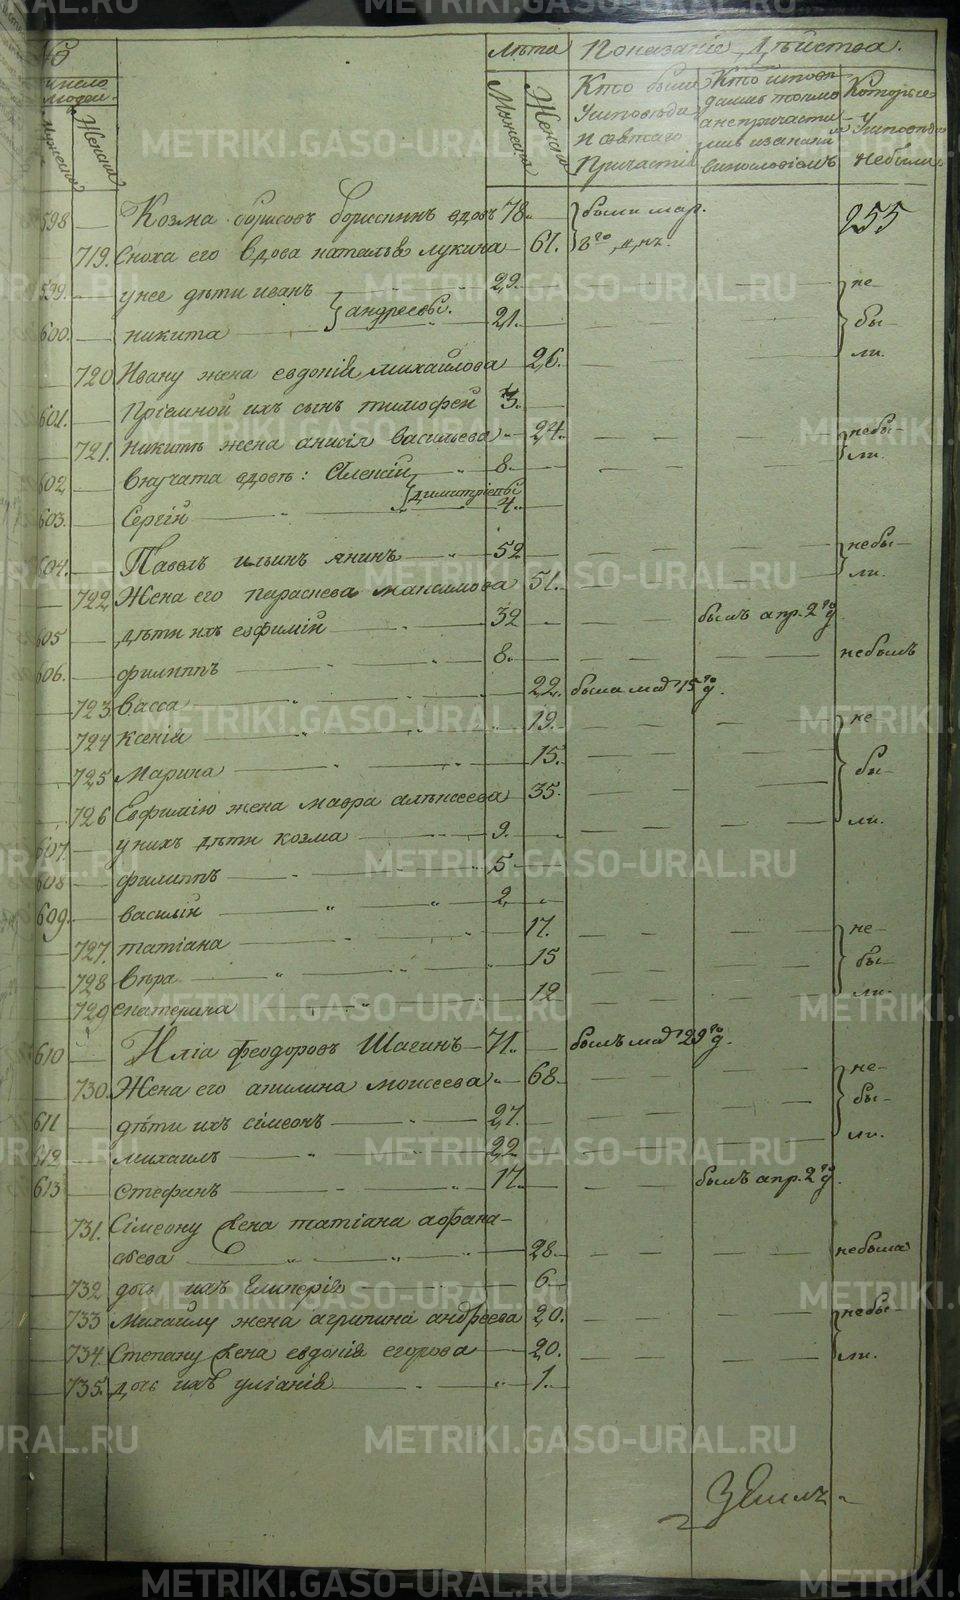 Лѣта Показаніе Дѣйства.
число людей.
Мужеска Женска
Мужеска Женска
Кто были У исповѣди и святаго Причастія
Кто исповѣдались токмо а не причастились и за какимъ винословіемъ
Которые У исповѣди не были
598 Козма борисовъ бориспинъ вдовъ 78. были мар. 255
719. Сноха его Вдова наталья лукина 61. 3го днь.
599. у нее дѣти иванъ 29. не
андреевы.
600. никита 21. бы
720 Ивану жена евдокія михайлова 26. ли.
601. Пріемной ихъ сынъ тимофей 3.
721. никитѣ жена анисія васильева 24. небы-
602 Внучата вдовъ: Алексій 8. ли.
Димитріевы
603. Сергій 4.
604. Павелъ ильинъ янинъ 52 небы-
722 Жена его параскева максимова 51. ли.
605 дѣти ихъ евфимій 32 былъ апр. 2го д
606. филиппъ 8. небылъ
723 васса 22. была мар 15го д.
724 ксенія 19. не
725 Марина 15. бы-
726 Евфимію жена мавра алексеева 35. ли.
607. у нихъ дѣти козма 9.
608 филиппъ 5
609. василій 2
727. татіана 17. не-
728 вѣра 15 бы-
729 екатерина 12 ли.
610 Иліа феодоровъ Шагинъ 71. былъ мар 29го д.
730. Жена его акилина моисеева 68. не-
611 дѣти ихъ сімеонъ 27. бы-
612 михаилъ 22 ли.
613 стефанъ 17. былъ апр. 2го д.
731. Сімеону Жена татіана афана-
сьева 28. небыла
732 дочь ихъ Гликерія 6.
733 Михайлу жена агрипина андреева 20. небы-
734. Степану Жена евдокія егорова 20. ли.
735. дочь ихъ уліанія 1.
METRIKI.GASO-URAL.RU